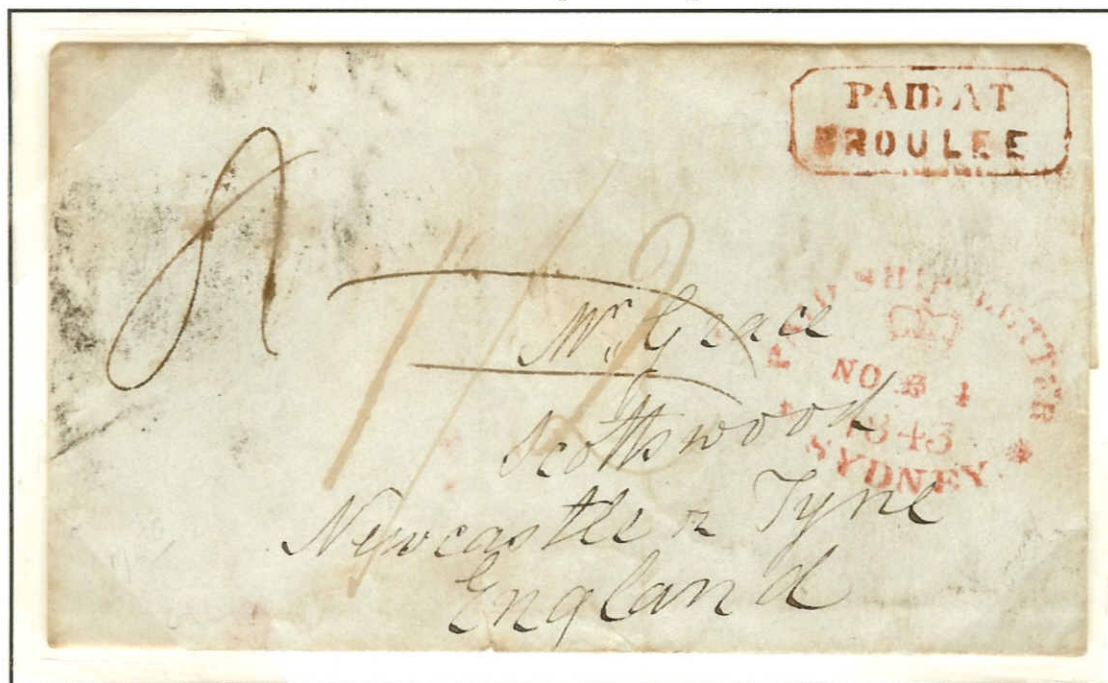 PAID AT
BROULEE
8
1/2
PAID SHIP LETTER
NO 1
1843
SYDNEY
Mr Grace
Scotswood
Newcastle n Tyne
England